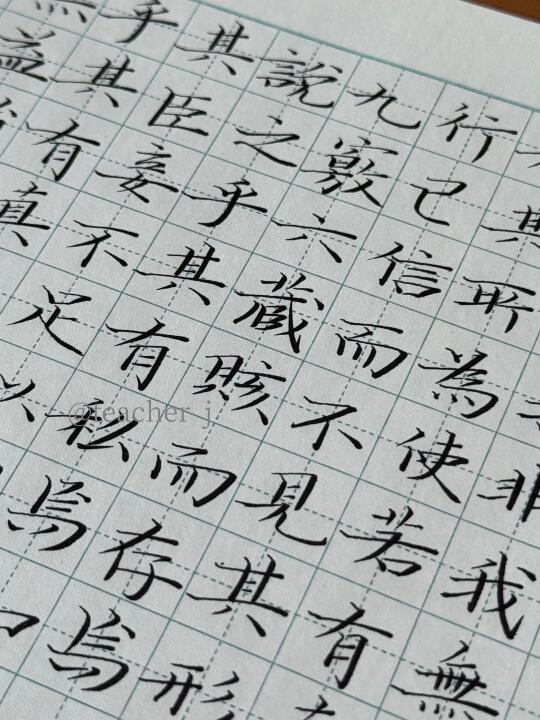 非我無
其所為使若有
行已信而不見其形
九竅六藏賅而存焉
說之乎其有私焉
其臣妾不足以
乎其有真
無益
@teacher_j